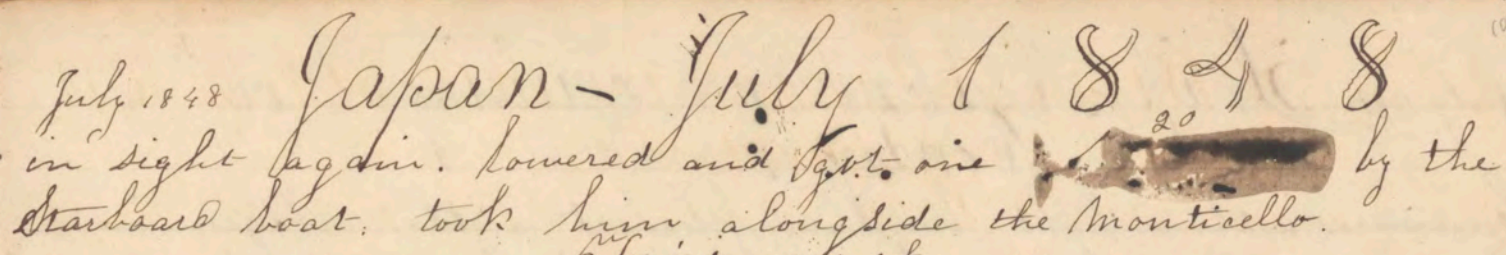 July 1848 Japan - July 1848
in sight again. lowered and got one 20 by the
Starboard boat. took him alongside the Monticello.